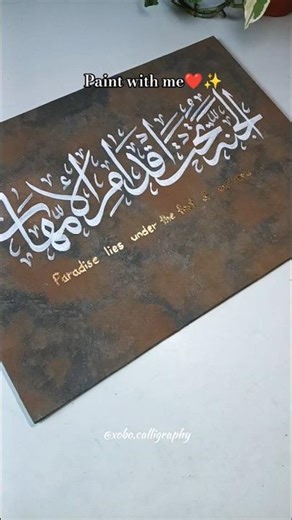 Paint with me❤️✨
الجنة تحت أقدام الأمهات
Paradise lies under the
@xobo.calligraphy